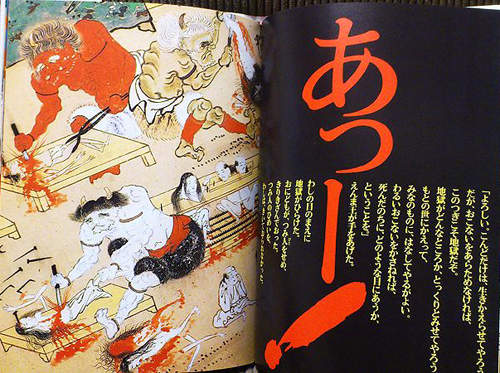 あっー!
「よろしい、こんどだけは、生きかえらせてやろう
だが、おこないをあらためなければ、
このつぎこそ地獄だぞ。
地獄がどんなところか、とっくりとみせてやろう
もとの世にかえって、
みなのものに、はなしてやるがよい。
わるいおこないをかさねれば、
死んだのちに、どのような目にあうか、
ということを」
えんま王が手をあげた。
わしの目のまえに
地獄がひらけた。
おにどもが、つみ人をせめ、
きりきざんでおった。
つみ人のひめいを、